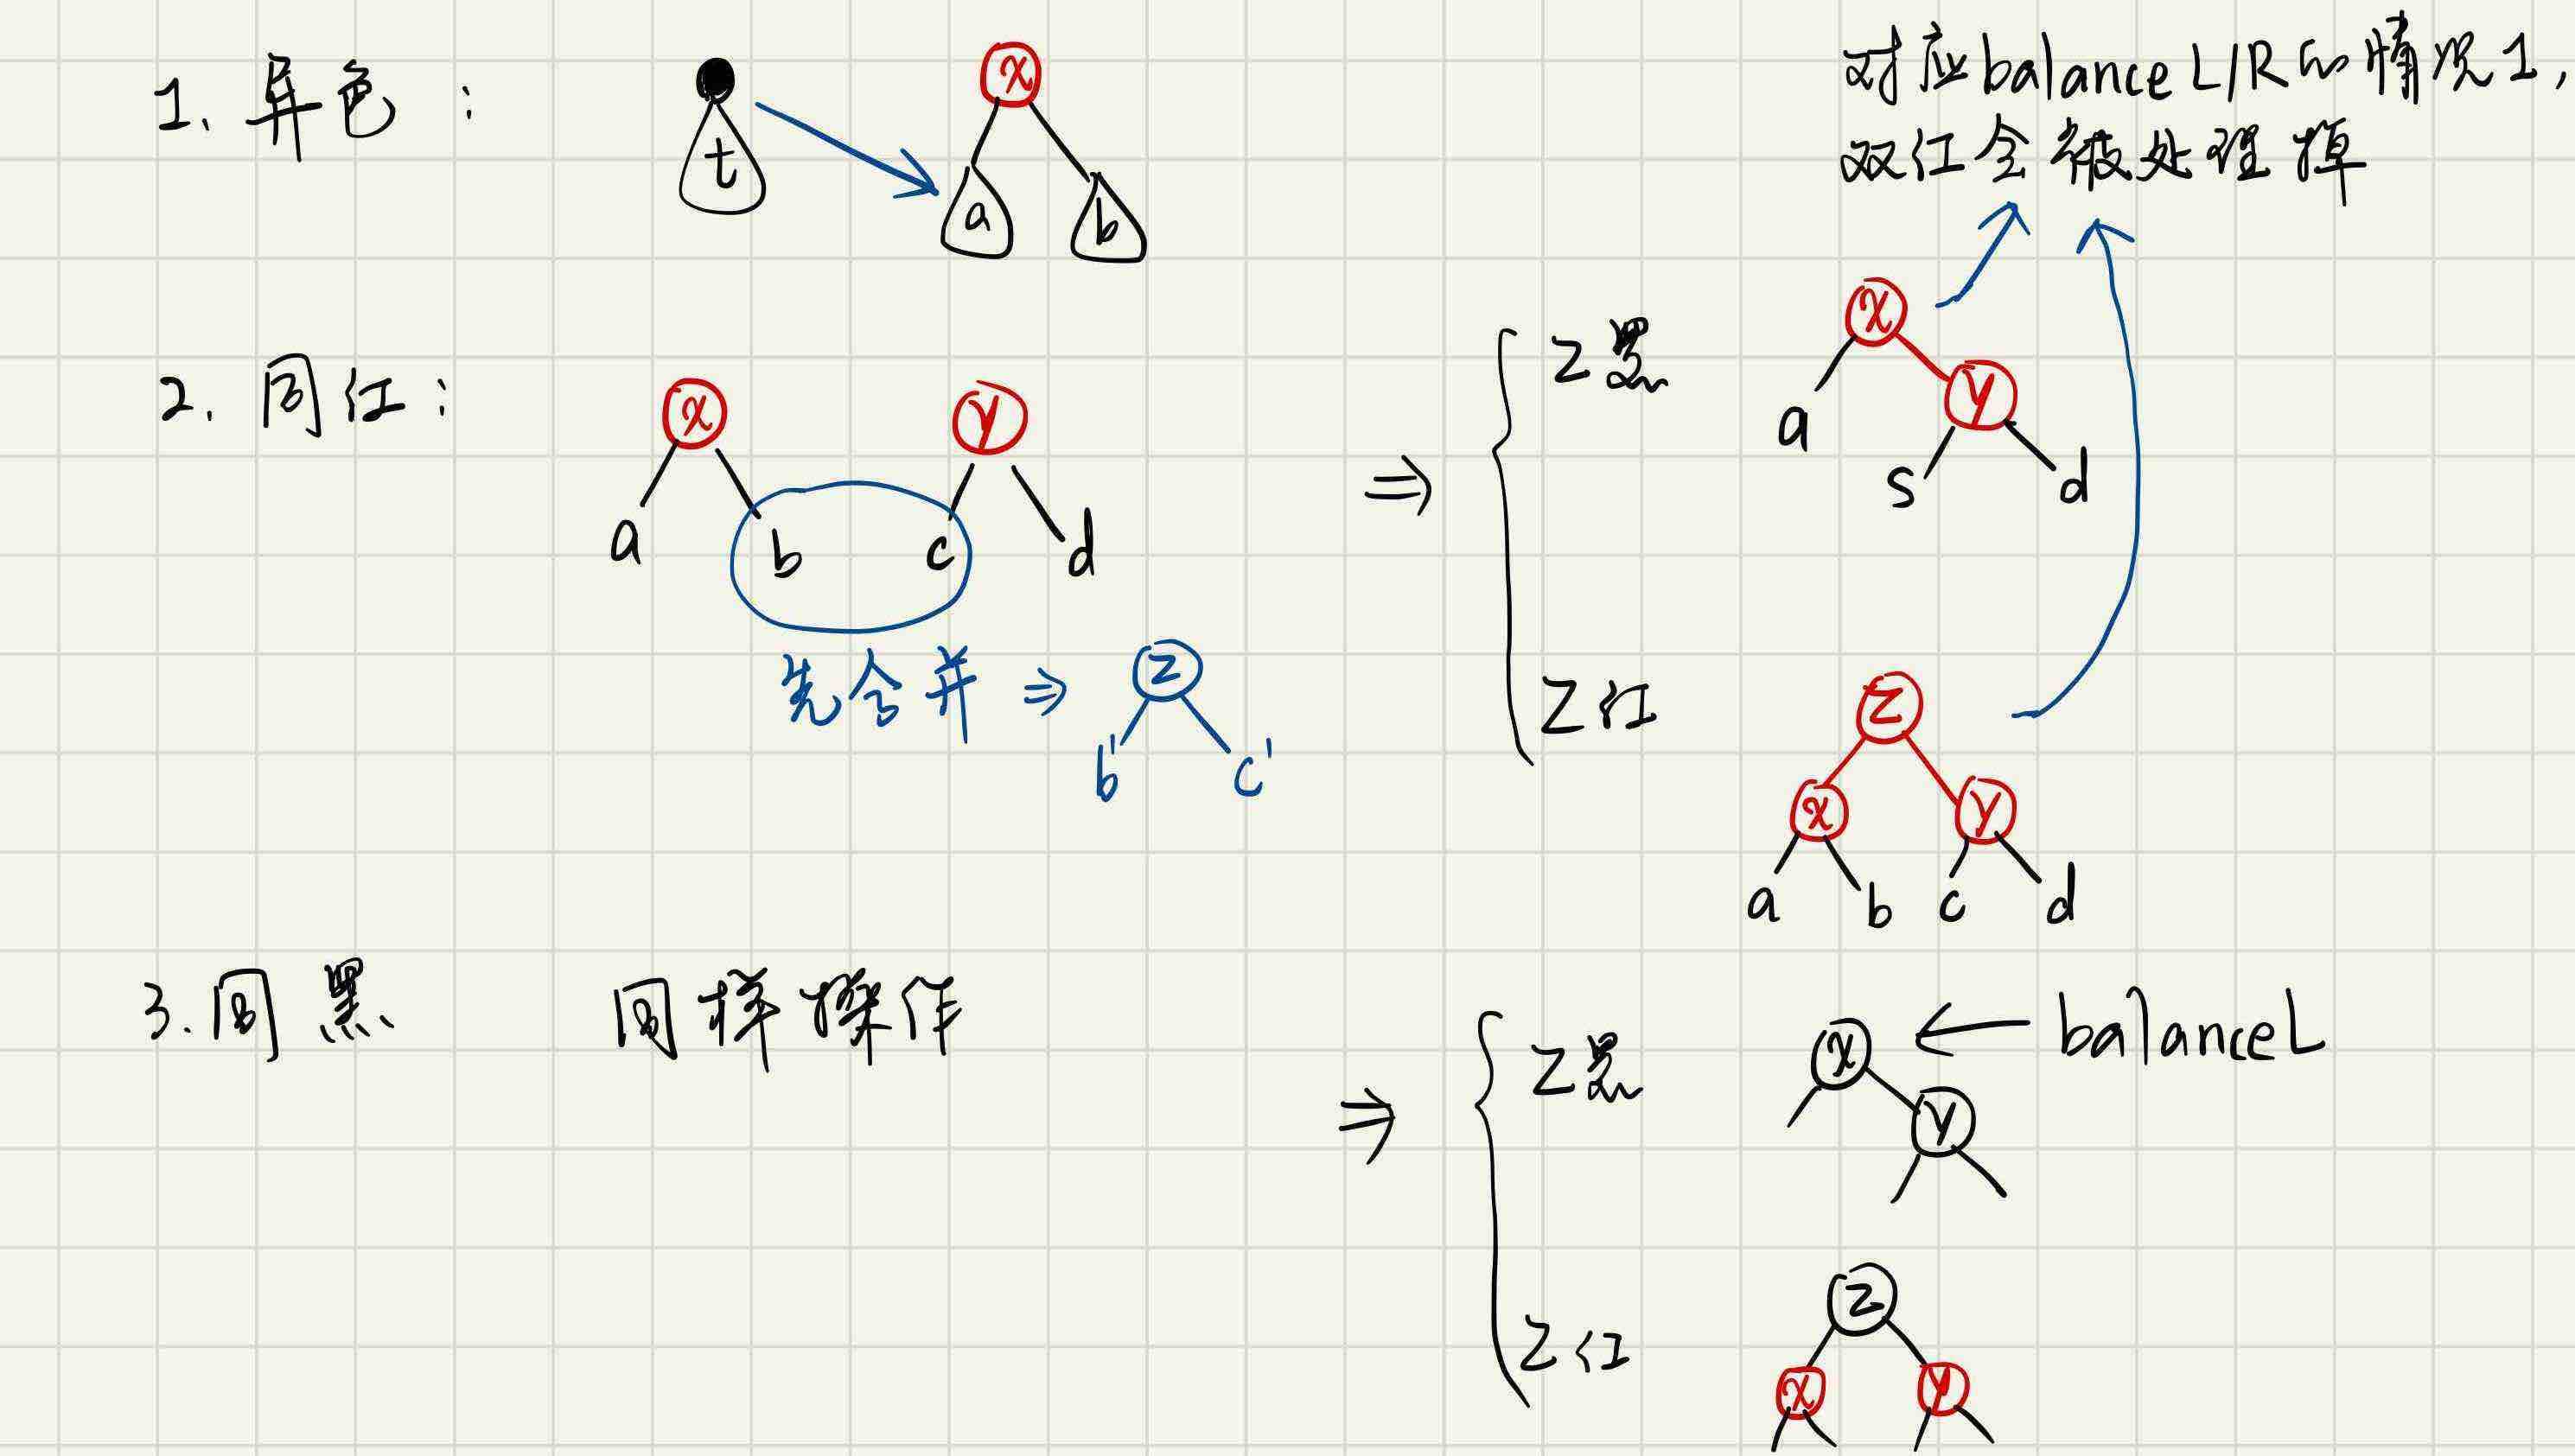 1. 异色：
t
x
a
b
对应balanceL/R的情况1,
双红会被处理掉
2. 同红：
x
y
a
b
c
d
先合并 ⇒
z
b'
c'
⇒
z黑
x
a
y
s
d
z红
z
x
y
a
b
c
d
3. 同黑
同样操作
⇒
z黑
x
← balanceL
y
z红
z
x
y